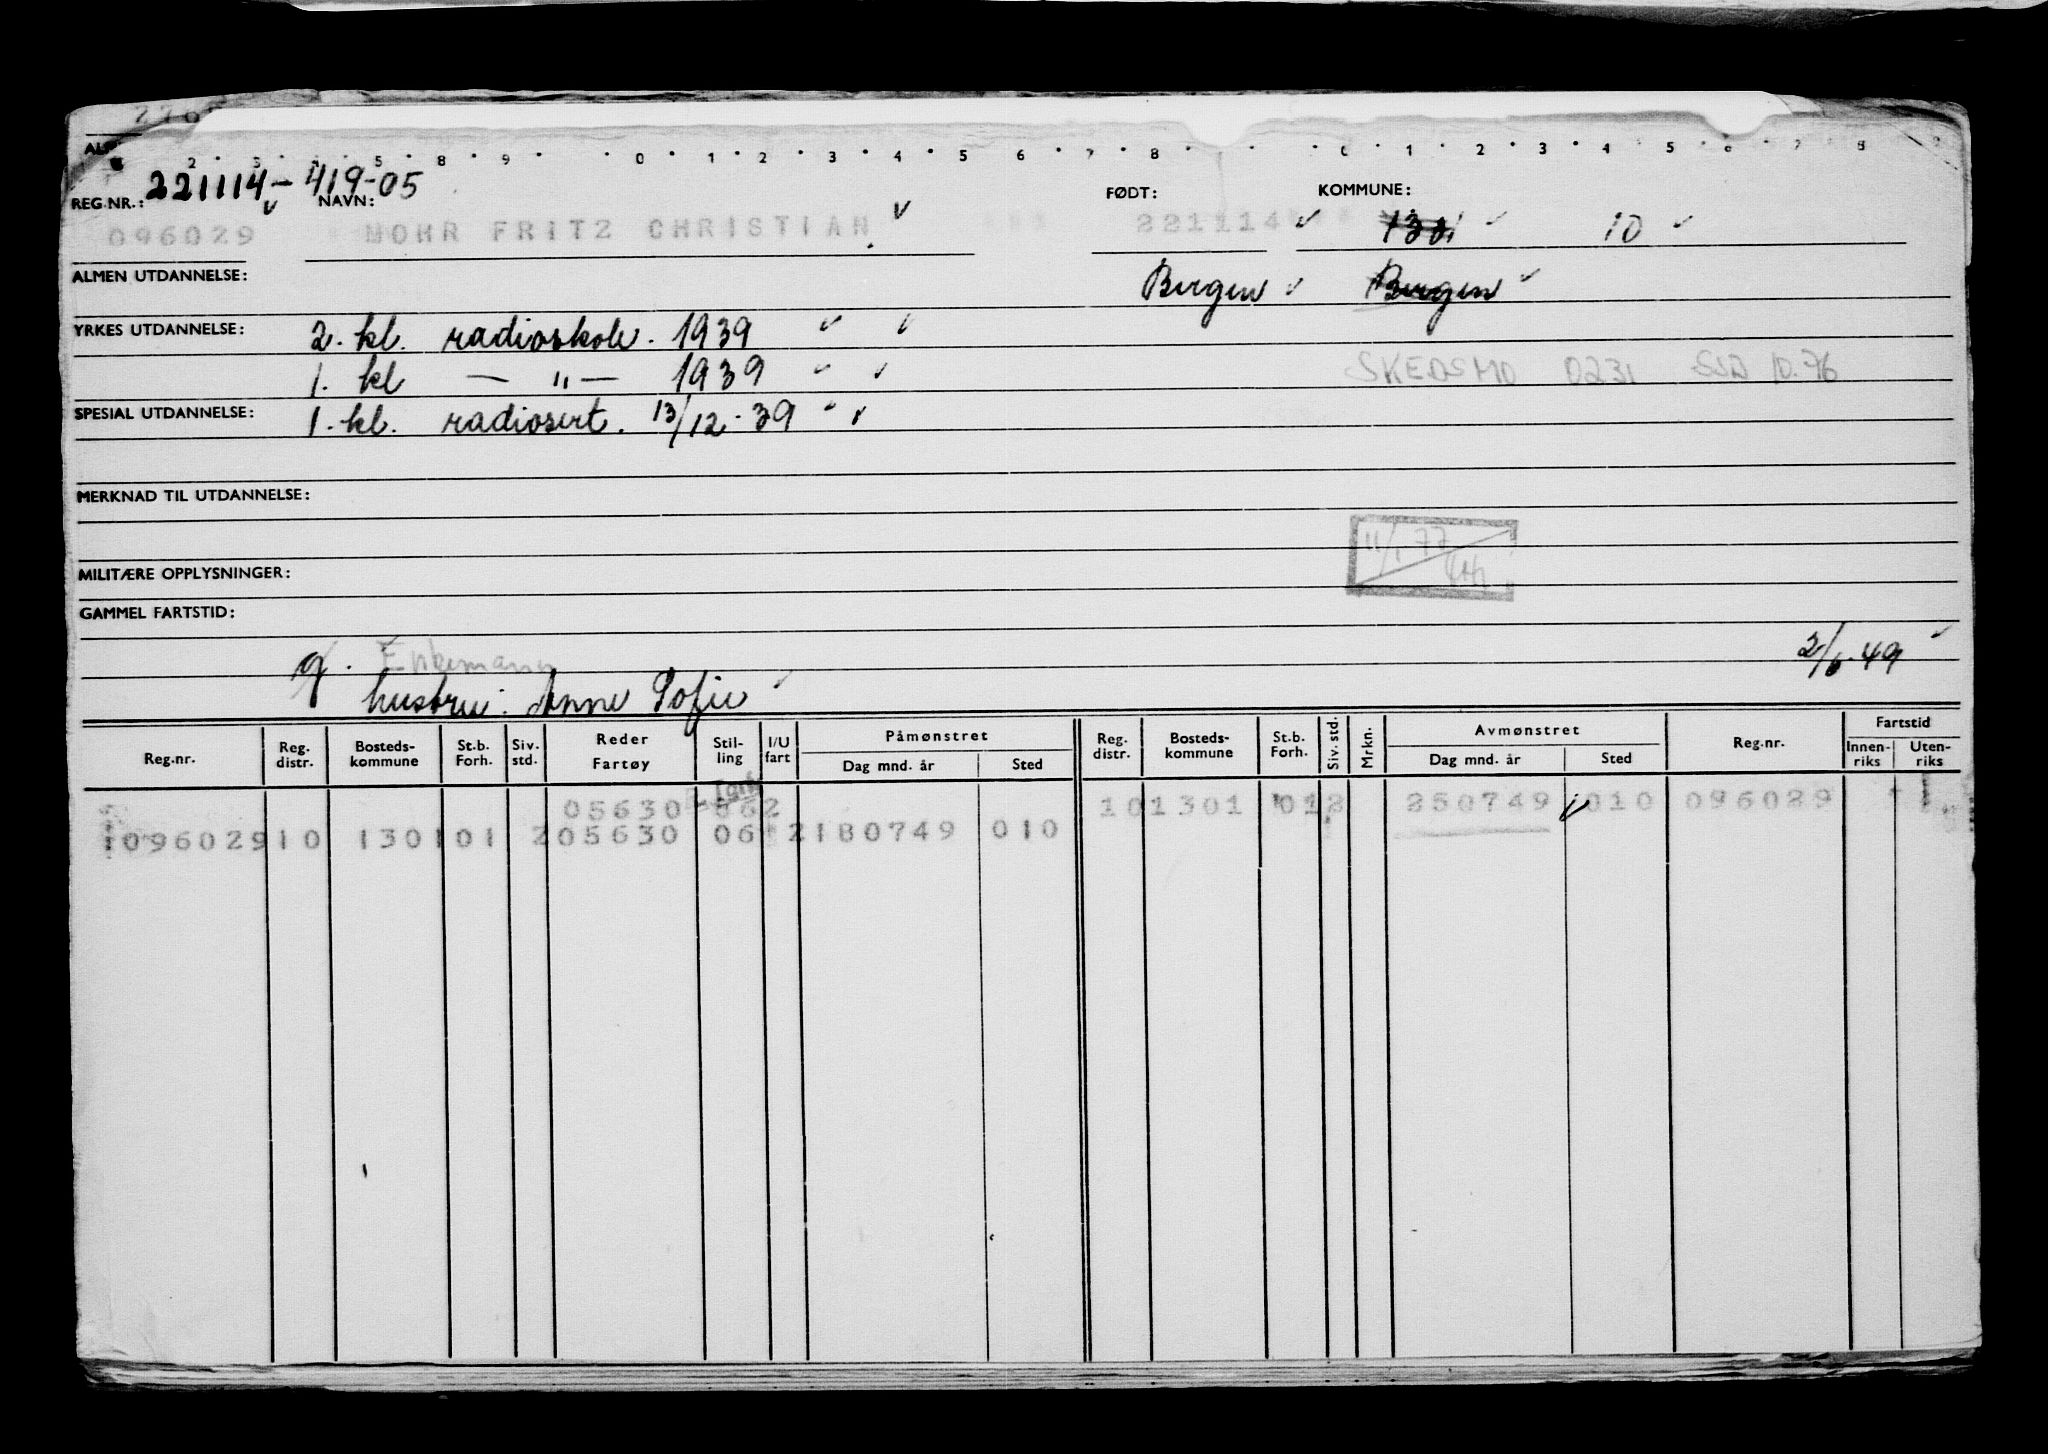 2 3 4 5 8 9 0 1 2 3 4 5 6 7 8 0 1 2 3 4 5 6 7 8
221114-419-05
REG.NR.: NAVN: FØDT: KOMMUNE:
096029 MOHR FRITZ CHRISTIAN 221114 1301 10
ALMEN UTDANNELSE: Bergen Bergen
YRKES UTDANNELSE: 2. kl. radioskole. 1939
1. kl — " — 1939 SKEDSMO 0231 SSD 10.76
SPESIAL UTDANNELSE: 1. kl. radiosert. 13/12-39
MERKNAD TIL UTDANNELSE:
11/1 77
MILITÆRE OPPLYSNINGER:
GAMMEL FARTSTID:
g. Enkemann 2/6-49
hustru: Anne Sofie
Reg.nr. Reg. distr. Bosteds-kommune St.b. Forh. Siv. std. Reder Fartøy Stil-ling I/U fart Påmønstret Dag mnd. år Sted Reg. distr. Bosteds-kommune St.b. Forh. Siv. std. Mrkn. Avmønstret Dag mnd. år Sted Reg.nr. Fartstid Innen-riks Uten-riks
05630 062 10 1301 01 2 250749 010 096029
096029 10 1301 01 2 05630 06 2 180749 010